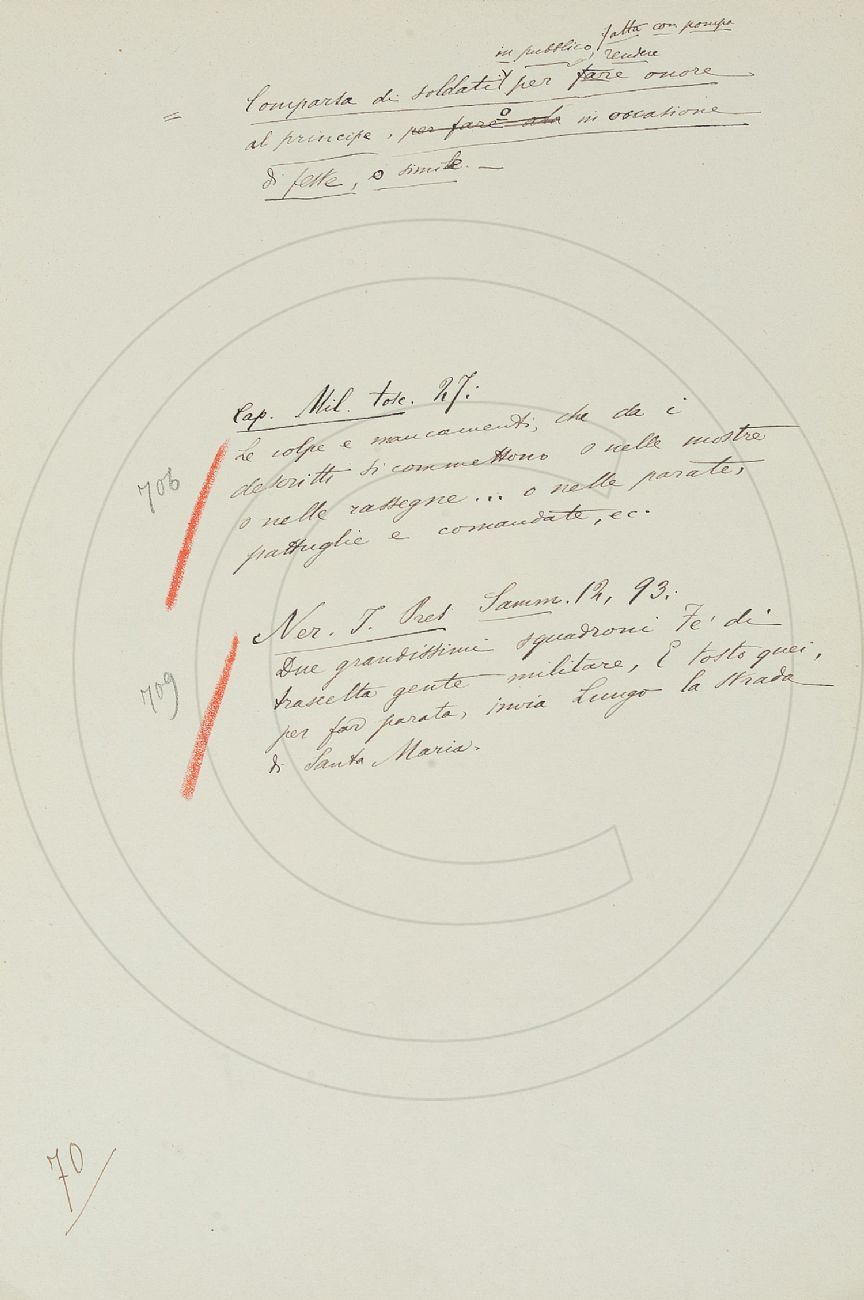 fatta con pompa
in pubblico, rendere
= Comparsa di soldati per fare onore
al principe, per fare o in occasione
di feste, o simile. —
Cap. Mil. tosc. 27:
706 Le colpe e mancamenti, che da i
descritti si commettono o nelle mostre
o nelle rassegne ... o nelle parate,
pattuglie e comandate, ec.
709 Ner. I. Pres Samm. 12, 93:
Due grandissimi squadroni Fe' di
trascelta gente militare, E tosto quei,
per far parata, invia Lungo la strada
di Santa Maria.
70